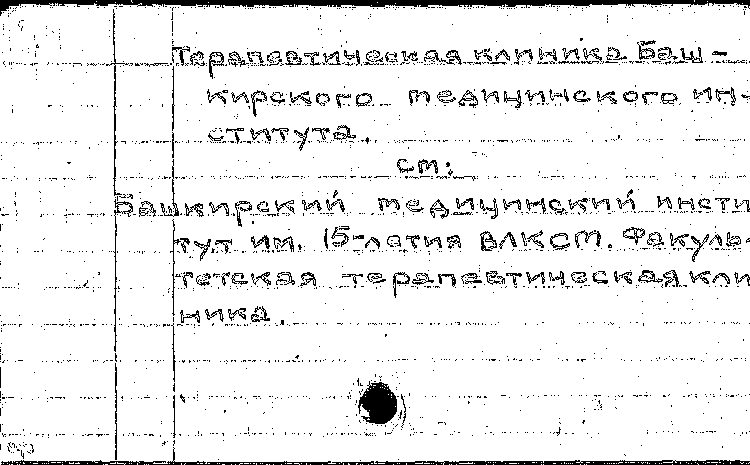 Терапевтическая клиника Баш-
кирского медицинского ин-
ститута.
см:
Башкирский медицинский инсти
тут им. 15-летия ВЛКСМ. Факуль-
тетская терапевтическая кли
ника.